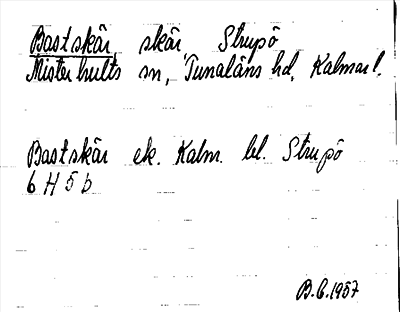 Bastskär, skär Strupö
Misterhults sn, Tunaläns hd, Kalmar l.
Bastskär ek. Kalm. bl. Strupö
6 H 5 b
B.C. 1957